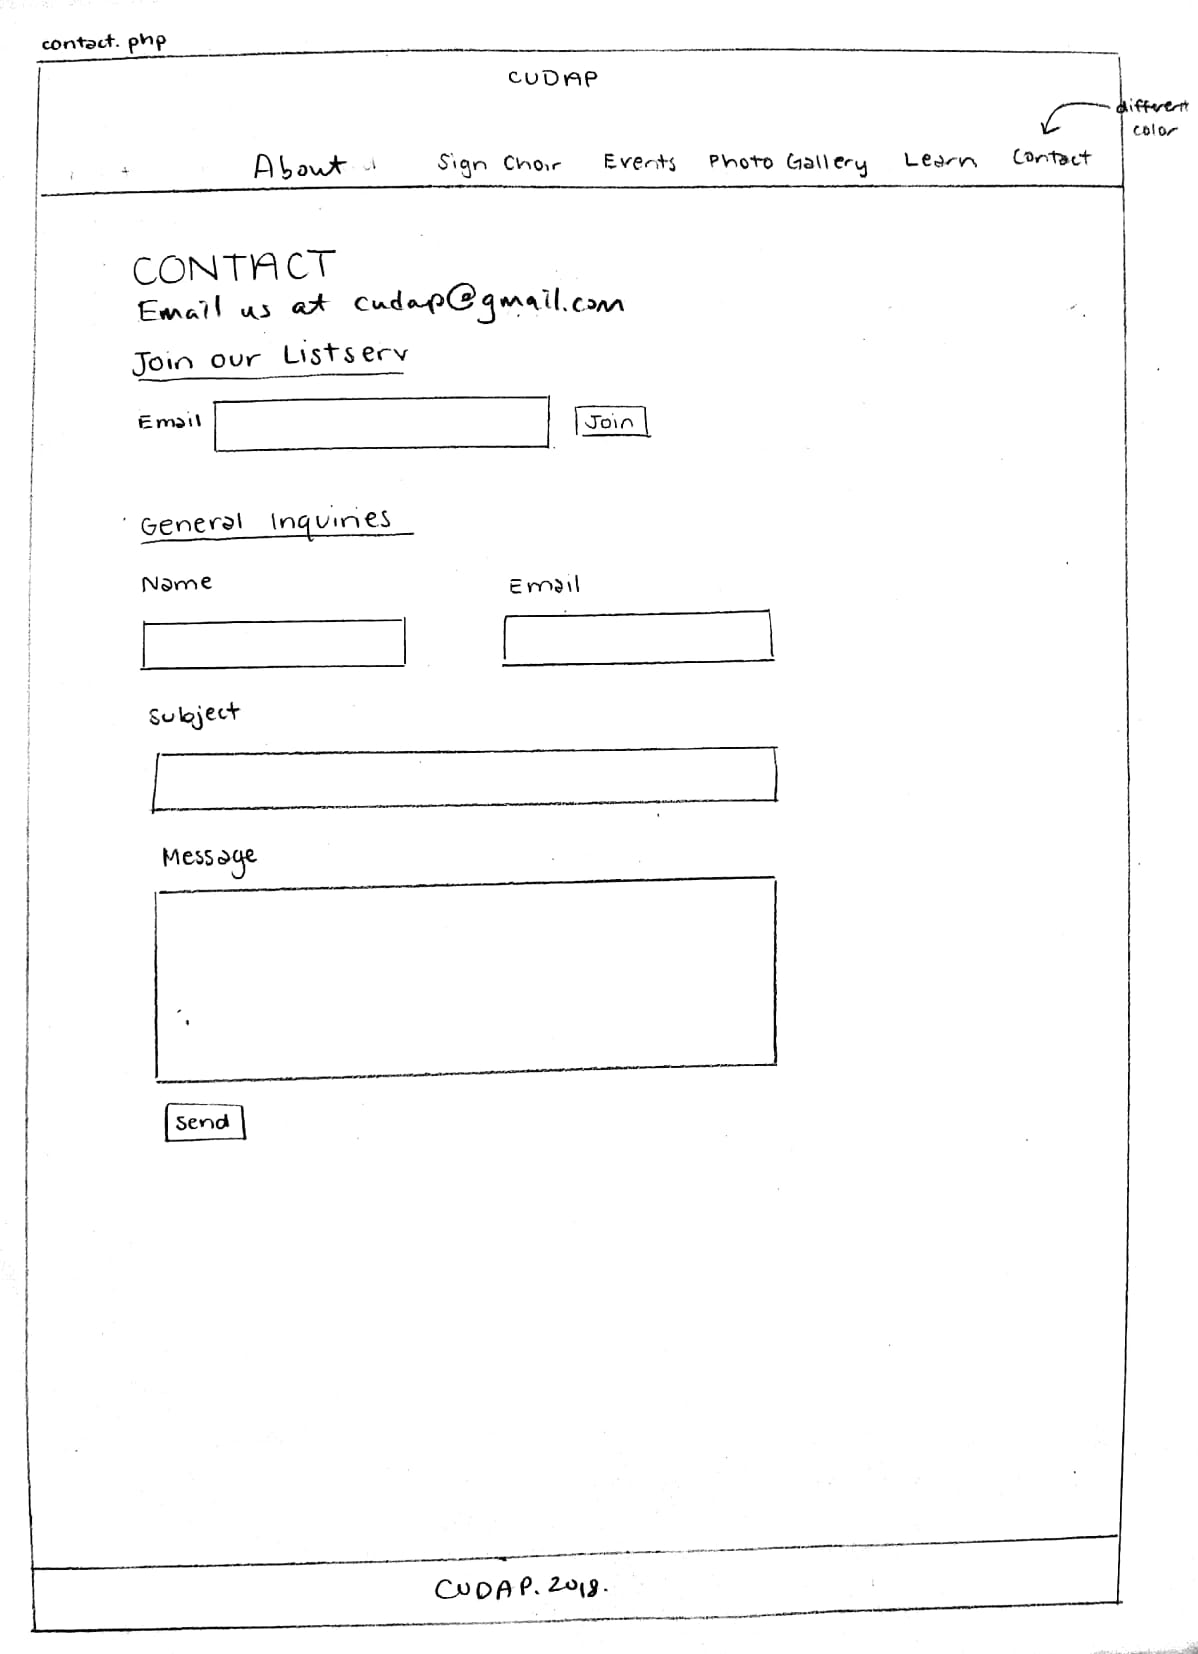 contact.php
CUDAP
different
color
About Sign Choir Events Photo Gallery Learn Contact
CONTACT
Email us at cudap@gmail.com
Join our Listserv
Email Join
General Inquiries
Name Email
Subject
Message
Send
CUDAP. 2018.